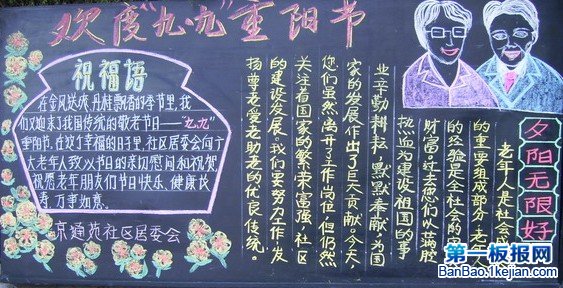 欢度“九·九”重阳节
祝福语
在金风送爽,丹桂飘香的季节里,我
们又迎来了我国传统的敬老节日——“九.九”
重阳节.在这个幸福的日子里,社区居委会向广
大老年人致以节日的亲切慰问和祝贺.
祝愿老年朋友们节日快乐、健康长
寿、万事如意.
京通苑社区居委会
夕阳无限好
老年人是社会
的重要组成部分,老年
的经验是全社会的
财富。过去您们以满腔
热血为建设祖国的事
业辛勤耕耘、默默奉献,为国
家的发展作出了巨大贡献。今天,
您们虽然离开了工作岗位,但仍然
关注着国家的繁荣富强,社区
的建设发展。我们要努力工作,发
扬尊老爱老助老的优良传统。
第一板报网
BanBao.1kejian.com